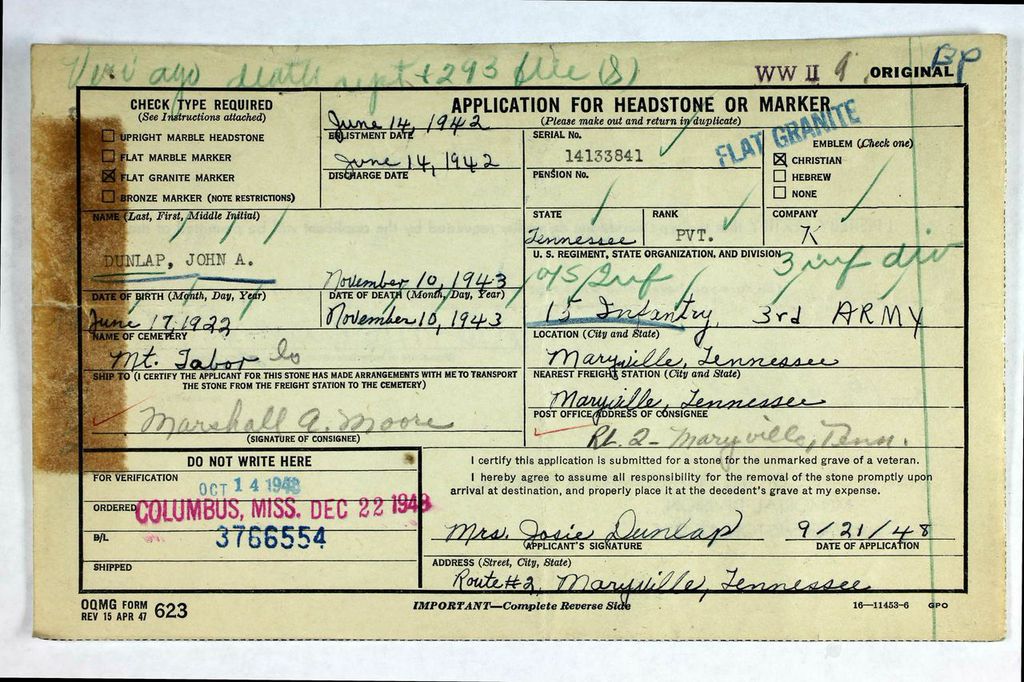 Veri ago death sept + 293 file (8)
WW II 9 ORIGINAL BP
CHECK TYPE REQUIRED
(See Instructions attached)
UPRIGHT MARBLE HEADSTONE
FLAT MARBLE MARKER
FLAT GRANITE MARKER
BRONZE MARKER (NOTE RESTRICTIONS)
June 14, 1942
ENLISTMENT DATE
June 14, 1942
DISCHARGE DATE
APPLICATION FOR HEADSTONE OR MARKER
(Please make out and return in duplicate)
SERIAL No.
14133841
PENSION No.
FLAT GRANITE
EMBLEM (Check one)
CHRISTIAN
HEBREW
NONE
NAME (Last, First, Middle Initial)
DUNLAP, JOHN A.
STATE
Tennessee
RANK
PVT.
COMPANY
K
November 10, 1943
DATE OF BIRTH (Month, Day, Year)
June 17, 1922
DATE OF DEATH (Month, Day, Year)
November 10, 1943
U. S. REGIMENT, STATE ORGANIZATION, AND DIVISION
15 Inf 3 inf div
15 Infantry, 3rd ARMY
NAME OF CEMETERY
Mt. Tabor
LOCATION (City and State)
Maryville, Tennessee
SHIP TO (I CERTIFY THE APPLICANT FOR THIS STONE HAS MADE ARRANGEMENTS WITH ME TO TRANSPORT
THE STONE FROM THE FREIGHT STATION TO THE CEMETERY)
Marshall A. Moore
(SIGNATURE OF CONSIGNEE)
NEAREST FREIGHT STATION (City and State)
Maryville, Tennessee
POST OFFICE ADDRESS OF CONSIGNEE
Rt. 2 - Maryville, Tenn.
DO NOT WRITE HERE
FOR VERIFICATION
OCT 14 1948
ORDERED
COLUMBUS, MISS. DEC 22 1948
B/L
3766554
SHIPPED
I certify this application is submitted for a stone for the unmarked grave of a veteran.
I hereby agree to assume all responsibility for the removal of the stone promptly upon
arrival at destination, and properly place it at the decedent's grave at my expense.
Mrs. Josie Dunlap 9/21/48
APPLICANT'S SIGNATURE DATE OF APPLICATION
ADDRESS (Street, City, State)
Route #2, Maryville, Tennessee
OQMG FORM
REV 15 APR 47 623
IMPORTANT—Complete Reverse Side
16—11453-6 GPO